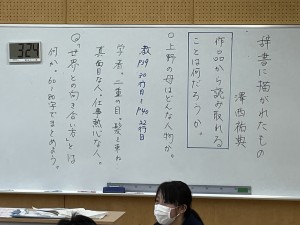 辞書に描かれたもの
澤西祐典
作品から読み取れる
ことは何だろうか。
○上野の母はどんな人物か。
教P39 20行目〜P40 22行目
学者。二重の目。髪を束ね
真面目な人。仕事熱心な人。
Q「世界との向き合い方」とは
何か。60〜80字でまとめよう。
324